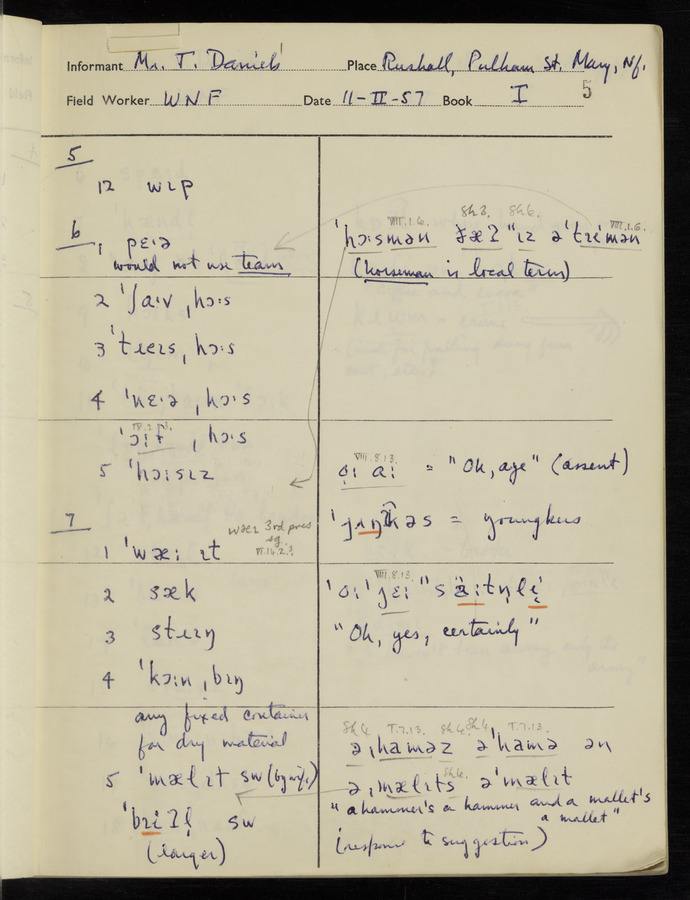 Informant Mr. T. Daniels Place Rushall, Pulham St. Mary, Nf.
Field Worker WNF Date 11-II-57 Book I 5
5
12 wɪp
6
1 pɛˑə
would not use team
2 ˈʃaˑv ˌhɔːs
3 ˈtɹeɪs ˌhɔːs
4 ˈnɛˑə ˌhɔːs
IV.2.3.
ˈɔːf ˌhɔːs
5 ˈhɔːsɪz
7
wæɪ 3rd pres
sg.
VI.14.2.
1 ˈwæːɪt
2 sæk
3 stɹɪŋ
4 ˈkɔːn ˌbɪŋ
any fixed container
for dry material
5 ˈmælɪt sw (by wife)
sw
(larger)
VIII.1.6. Sh3. Sh6. VIII.1.6.
ˈhɔːsmən ðæʔ "ɪz ə
(horseman is local term)
VIII.8.13.
= "Oh, aye" (assent)
= youngkus
VIII.8.13.
"Oh, yes, certainly"
Sh4. T.7.13. Sh4. Sh4. T.7.13.
ə ˌhaməz əˈhamə ən
Sh4.
ə ˌmælɪts əˈmælɪt
"a hammer's a hammer and a mallet's
a mallet"
(response to suggestion)